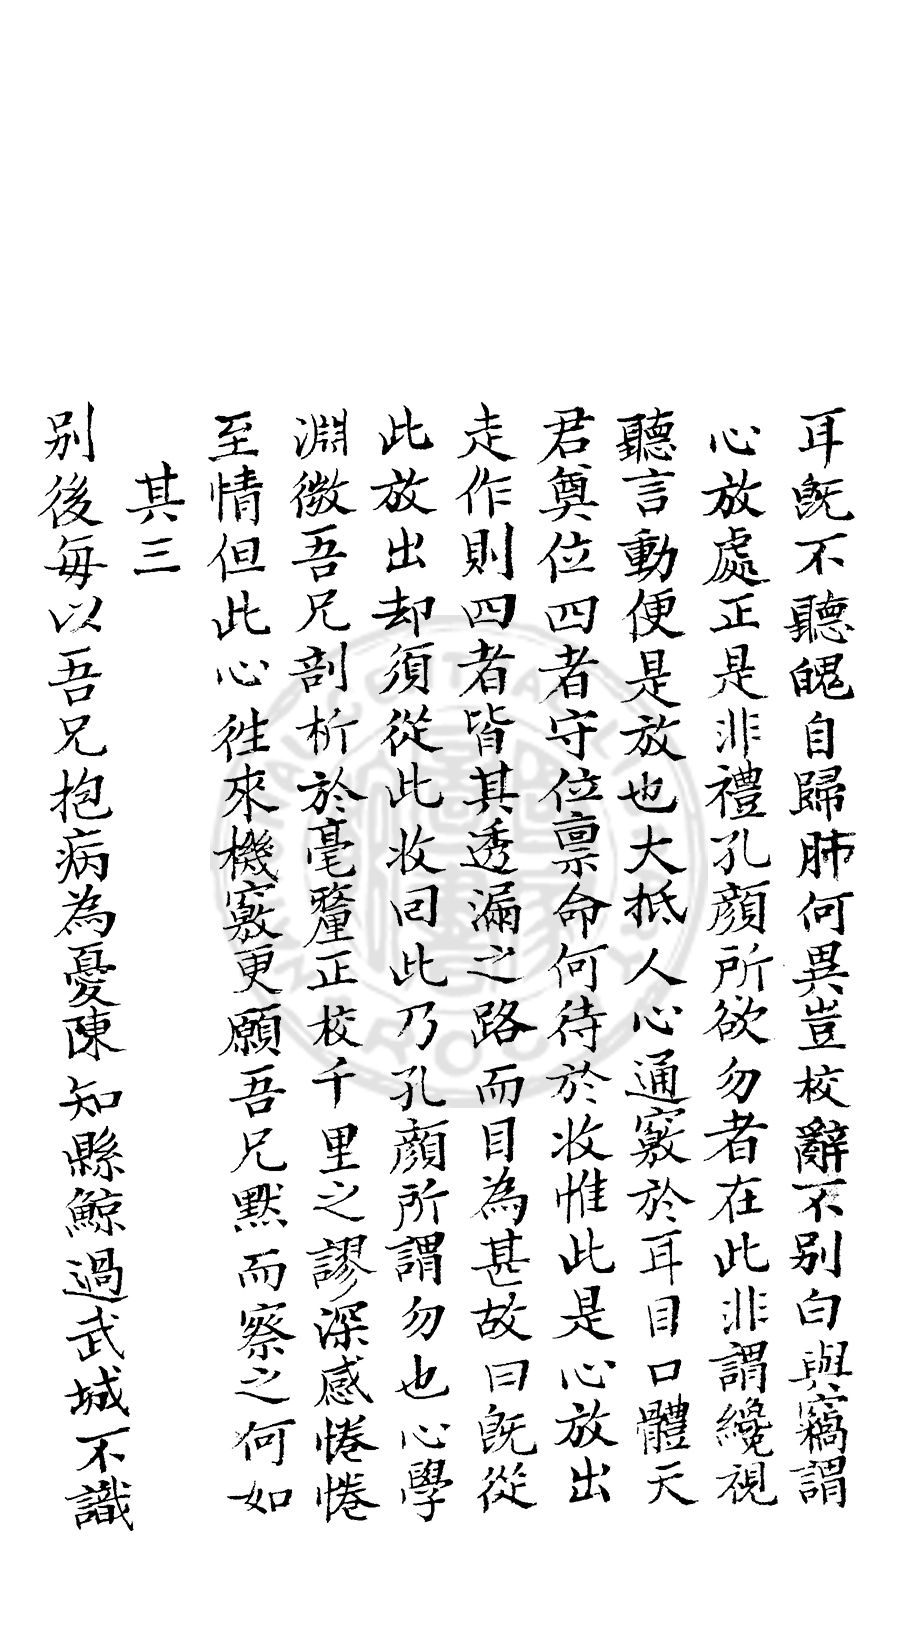 耳既不聽魄自歸肺何異豈校辭不别白與竊謂
心放處正是非禮孔顔所欲勿者在此非謂纔視
聽言動便是放也大抵人心通竅於耳目口體天
君奠位四者守位禀命何待於收惟此是心放出
走作則四者皆其透漏之路而目為甚故曰既從
此放出却須從此收回此乃孔顔所謂勿也心學
淵微吾兄剖析於毫釐正校千里之謬深感惓惓
至情但此心徃來機竅更願吾兄默而察之何如
其三
别後每以吾兄抱病為憂陳知縣鯨過武城不識